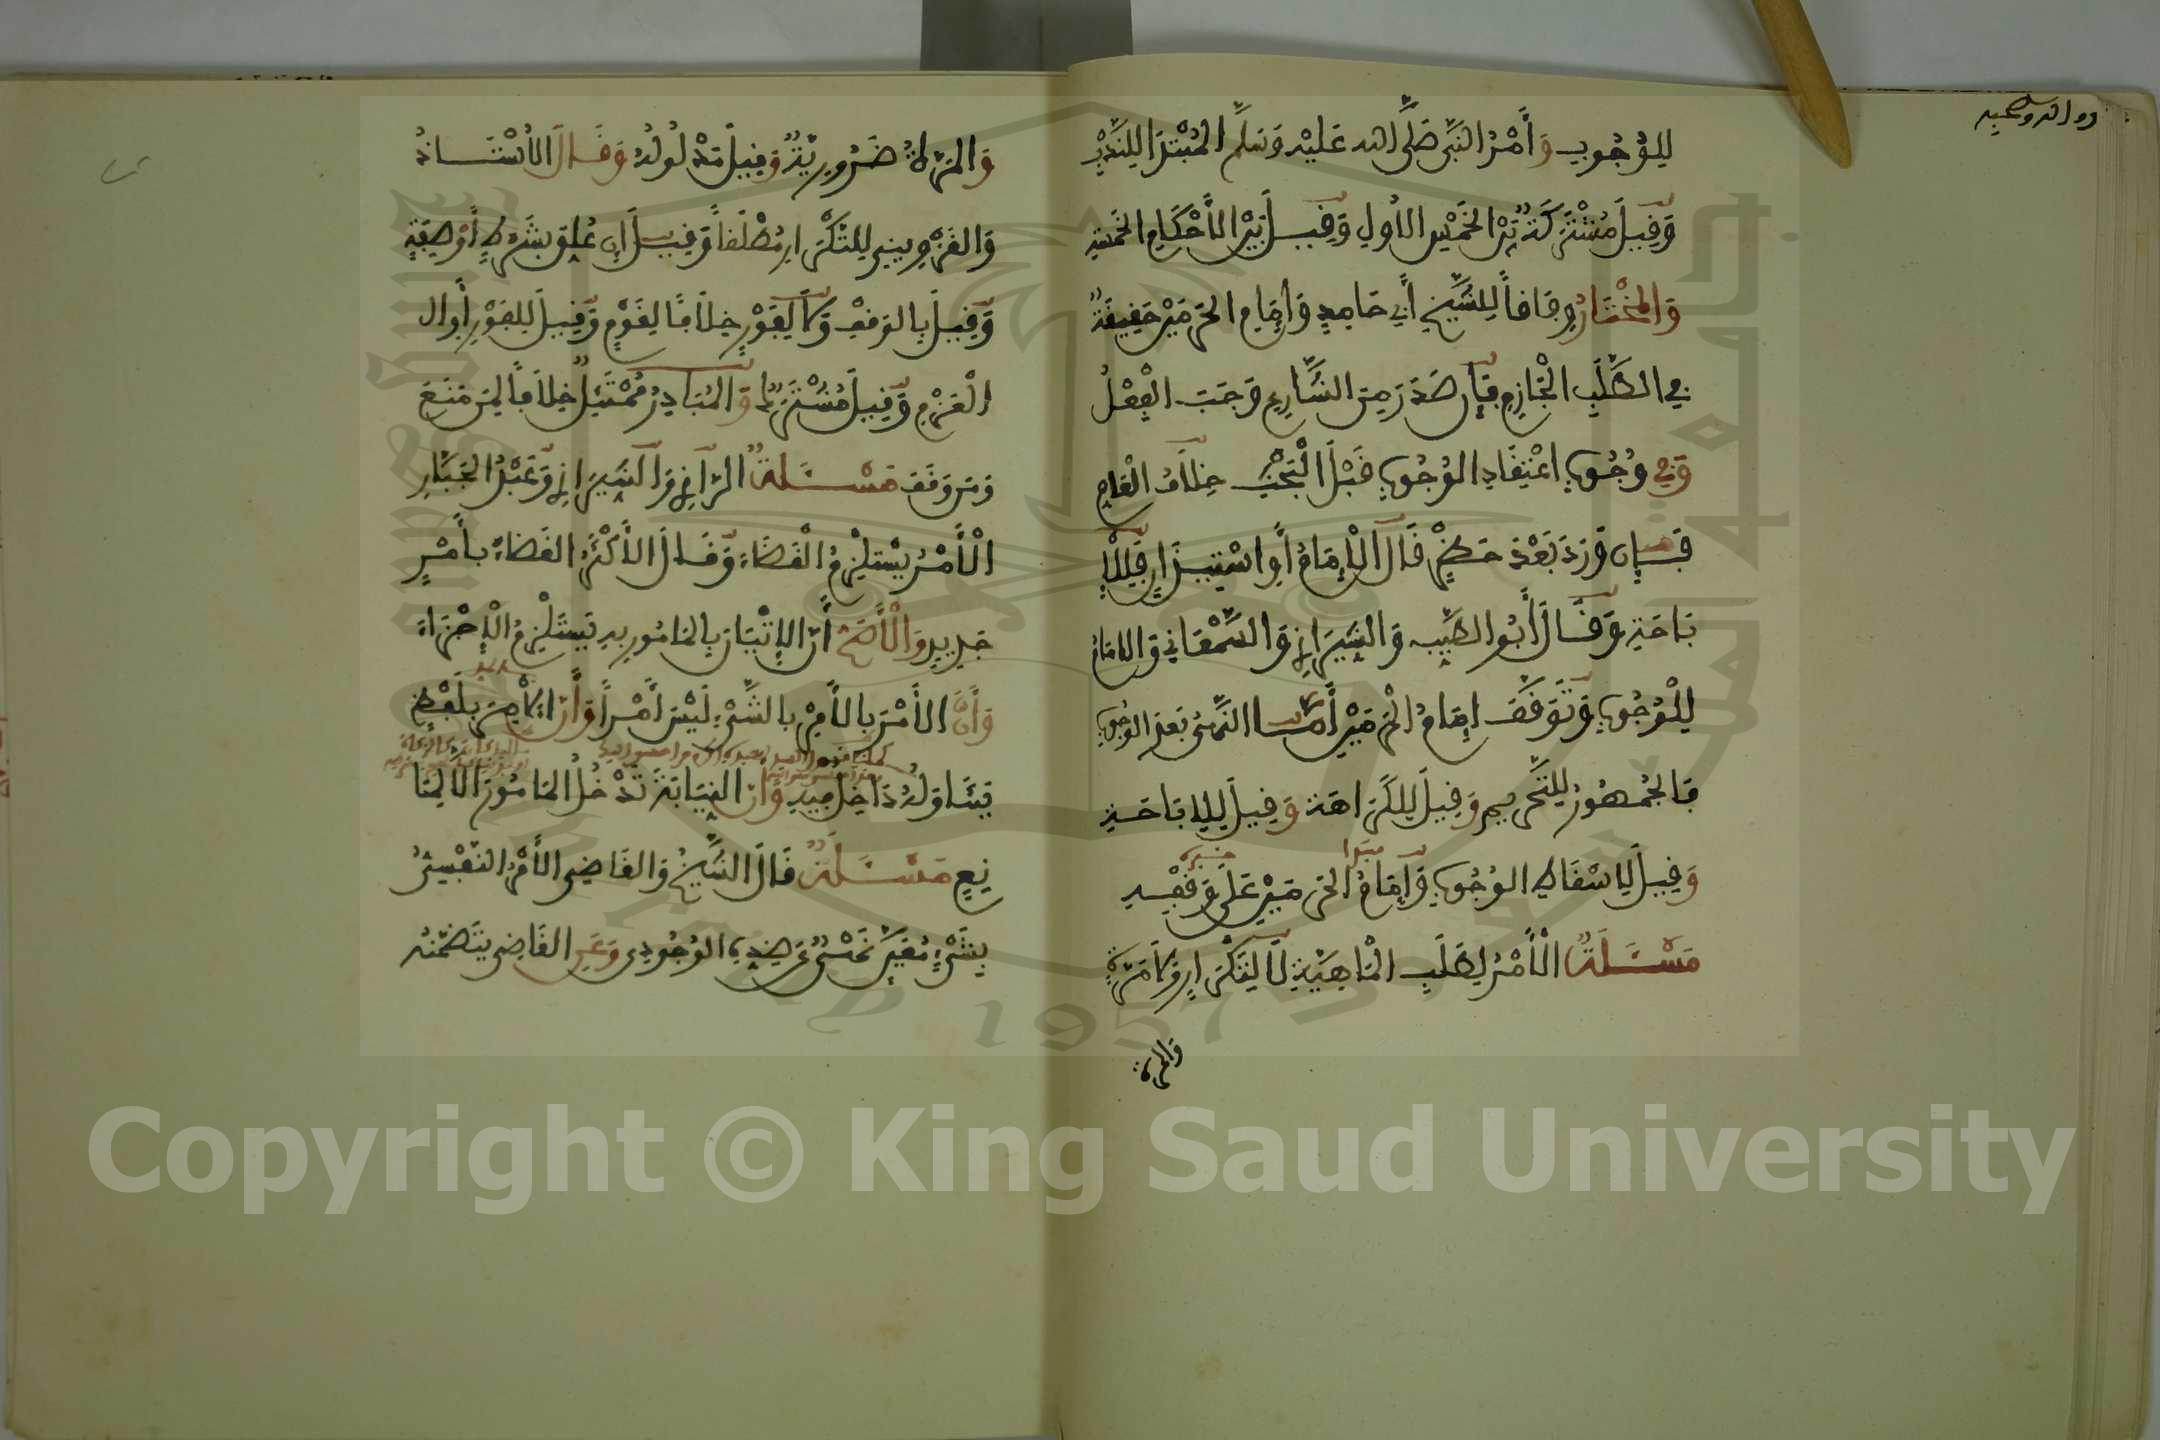 لِلْوُجُوبِ وَأَمْرُ النَّبِيِّ صَلَّى اللهُ عَلَيْهِ وَسَلَّمَ الْمُبْتَدَإِ لِلنَّدْبِ
وَقِيلَ مُشْتَرَكَةٌ بَيْنَ الْخَمْسِ الْأُوَلِ وَقِيلَ بَيْنَ الْأَحْكَامِ الْخَمْسَةِ
وَالْمُخْتَارُ وِفَاقاً لِلشَّيْخِ أَبِي حَامِدٍ وَإِمَامِ الْحَرَمَيْنِ حَقِيقَةٌ
فِي الطَّلَبِ الْجَازِمِ فَإِنْ صَدَرَ مِنَ الشَّارِعِ وَجَبَ الْفِعْلُ
وَفِي وُجُوبِ اعْتِقَادِ الْوُجُوبِ قَبْلَ الْبَحْثِ خِلَافُ الْعَامِ
فَإِنْ وَرَدَ بَعْدَ حَظْرٍ قَالَ الْإِمَامُ أَوِ اسْتِيذَانٍ فَلِلْإِ
بَاحَةِ وَقَالَ أَبُو الطَّيِّبِ وَالشِّيرَازِي وَالسَّمْعَانِي وَالْإِمَامُ
لِلْوُجُوبِ وَتَوَقَّفَ إِمَامُ الْحَرَمَيْنِ أَمَّا النَّهْيُ بَعْدَ الْوُجُوبِ
فَالْجُمْهُورُ لِلتَّحْرِيمِ وَقِيلَ لِلْكَرَاهَةِ وَقِيلَ لِلْإِبَاحَةِ
وَقِيلَ لِإِسْقَاطِ الْوُجُوبِ وَإِمَامُ الْحَرَمَيْنِ عَلَى وَقْفِهِ
مَسْئَلَةٌ الْأَمْرُ لِطَلَبِ الْمَاهِيَّةِ لَا لِتَكْرَارٍ وَلَا مَرَّةٍ
وَالمرة
وَالْمَرَّةُ ضَرُورِيَّةٌ وَقِيلَ مَدْلُولُهُ وَقَالَ الْأُسْتَاذُ
وَالْقَزْوِينِي لِلتَّكْرَارِ مُطْلَقاً وَقِيلَ إِنْ عُلِّقَ بِشَرْطٍ أَوْ صِفَةٍ
وَقِيلَ بِالْوَقْفِ وَلَا لِفَوْرٍ خِلَافاً لِقَوْمٍ وَقِيلَ لِلْفَوْرِ أَوِ ال
الْعَزْمِ وَقِيلَ مُشْتَرَكٌ وَالْمُبَادِرُ مُمْتَثِلٌ خِلَافاً لِمَنْ مَنَعَ
وَمَنْ وَقَفَ مَسْئَلَةٌ الرَّازِي وَالشِّيرَازِي وَعَبْدُ الْجَبَّارِ
الْأَمْرُ يَسْتَلْزِمُ الْقَضَاءَ وَقَالَ الْأَكْثَرُ الْقَضَاءُ بِأَمْرٍ
جَدِيدٍ وَالْأَصَحُّ أَنَّ الْإِتْيَانَ بِالْمَامُورِ بِهِ يَسْتَلْزِمُ الْإِجْزَاءَ
وَأَنَّ الْأَمْرَ بِالْأَمْرِ بِالشَّيْءِ لَيْسَ أَمْراً وَأَنَّ الْآمِرَ بِلَفْظٍ
يَتَنَاوَلُهُ دَاخِلٌ فِيهِ وَأَنَّ النِّيَابَةَ تَدْخُلُ الْمَامُورَ إِلَّا لِمَا
نِعٍ مَسْئَلَةٌ قَالَ الشَّيْخُ وَالْقَاضِي الْأَمْرُ النَّفْسِيُّ
بِشَيْءٍ مُعَيَّنٍ نَهْيٌ عَنْ ضِدِّهِ الْوُجُودِي وَعَنِ الْقَاضِي يَتَضَمَّنُهُ
Copyright © King Saud University
1957